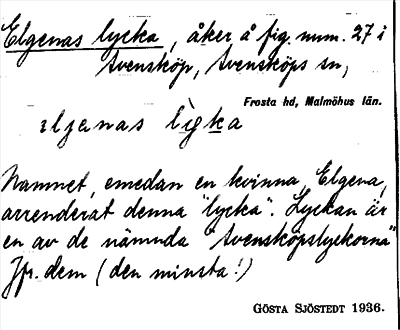 Elgenas lycka, åker å fig. num. 27 i
Svensköp, Svensköps sn,
Frosta hd, Malmöhus län.
eljenas ligka
Namnet, emedan en kvinna, Elgena,
arrenderat denna "lycka". Lyckan är
en av de nämnda "Svensköpslyckorna"
Jfr. dem (den minsta!)
GÖSTA SJÖSTEDT 1936.